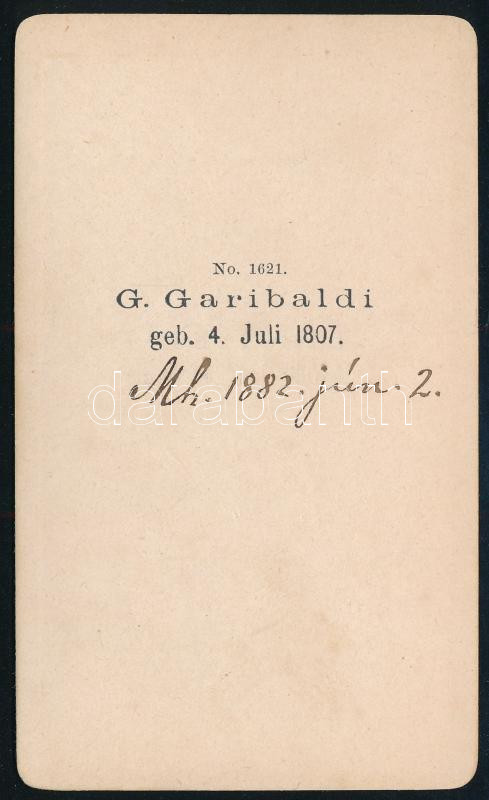 No. 1621.
G. Garibaldi
geb. 4. Juli 1807.
Mh. 1882. jún. 2.
darabanth